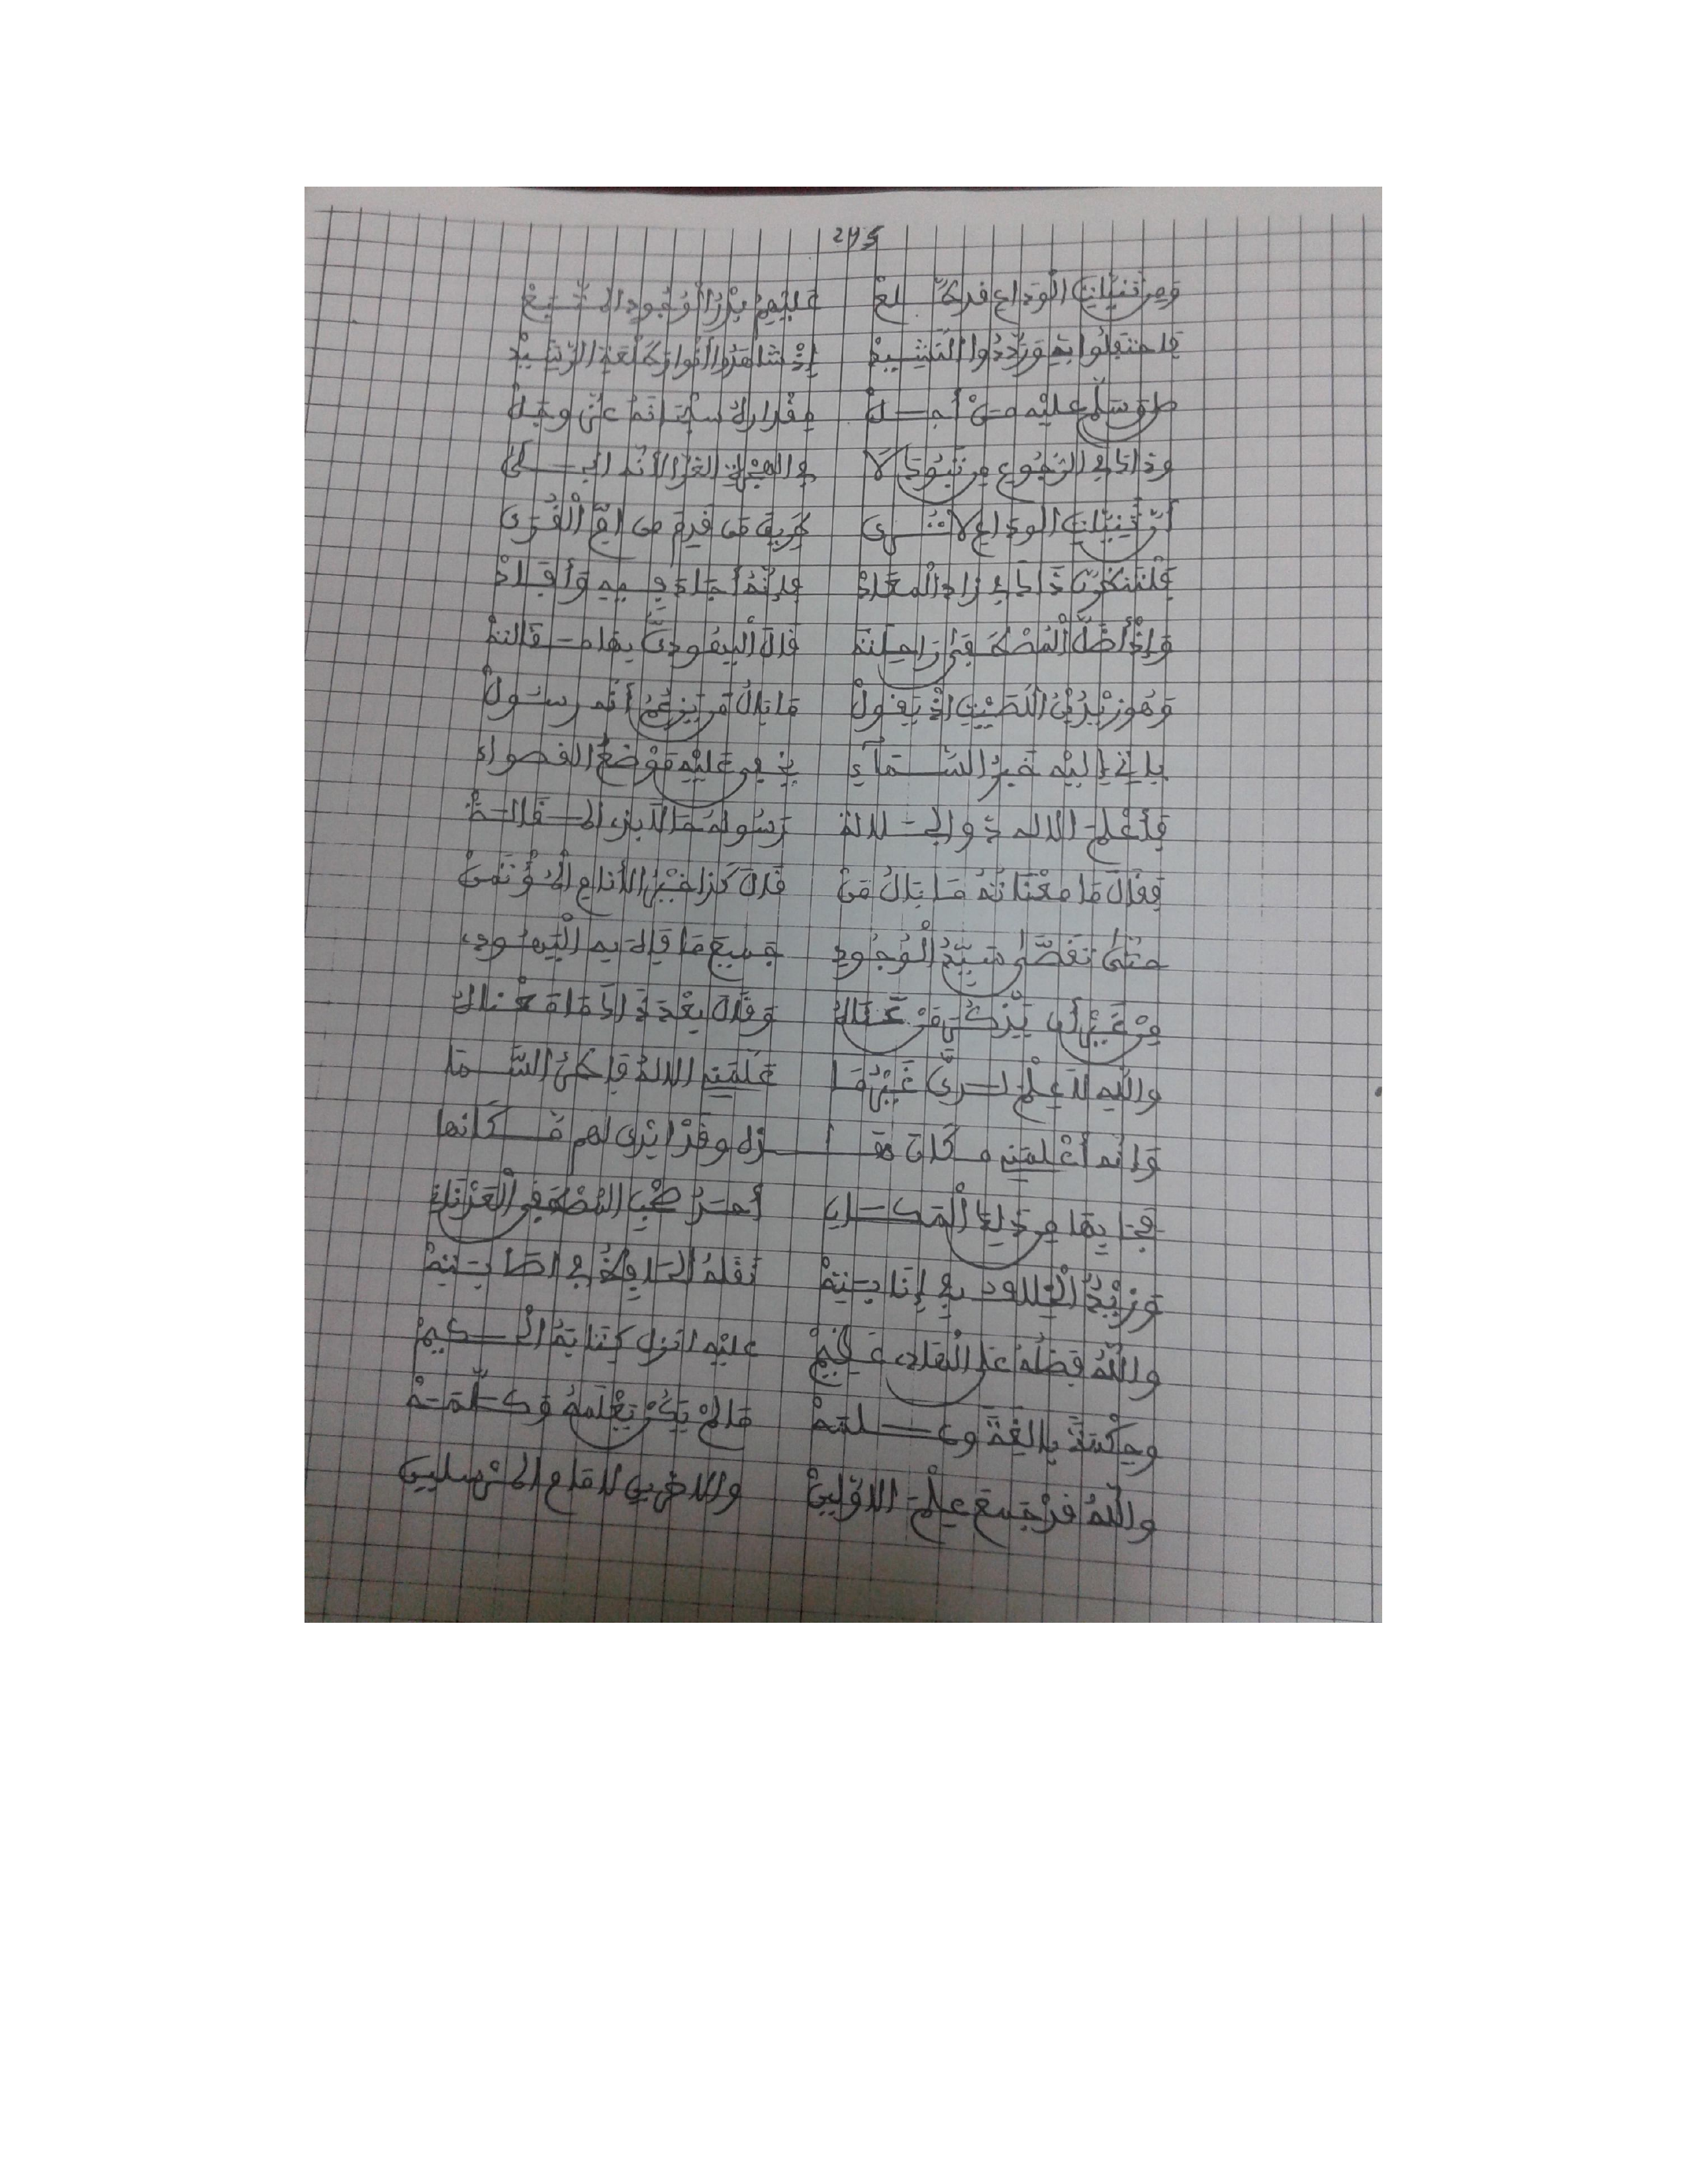 245
ومن ثنيات الوداع قد طلع عليهم بدر الوجود المتبع
فاحتفلوا به ورددوا النشيد إذ شاهدوا أنوار طلعة الرشيد
صل وسلم عليه من أجل مقداره سبحانه عز وجل
وذاك في الرجوع من تبوك لا في الهجرة الغرا لأنه انجلى
أن ثنيات الوداع لا ترى طريق من قدم من أم القرى
فلتنظرن ذاك في زاد المعاد فإنه أجاد فيه وأفاد
وإذ أضل المصطفى راحلته قال اليهودي بها مقالته
وهو زيد بن اللصيت إذ يقول ما بال من يزعم أنه رسول
يأتي إليه خبر السماء يخفى عليه موضع القصواء
فأعلم الاله ذو الجلالة رسوله مالابن ال قاله
فقال ما معناته ما بال من قال كذا خير الأنام المؤتمن
حتى تقصى سيد الوجود جميع ما قال به اليهودي
من غير أن يذكر من هناك وقال بعد ذاك ما معناك
والله لا علم لدي غير ما علمنيه الاله فاطر السما
وإنه أعلمني مكان هـ ـذه وقد أيرى لهم مكانها
فجا بها من ذلك المكان أحد صحب المصطفى العدنان
وزيد اللدود في إنابته نقله الحافظ في اصابته
والله فضله على الهادي عظيم عليه انزل كتابه الحكيم
وحكمة بالغة وعلمه مالم يكن يعلمه وكلمه
والله قد جمع علم الاولين والاخرين لامام المرسلين